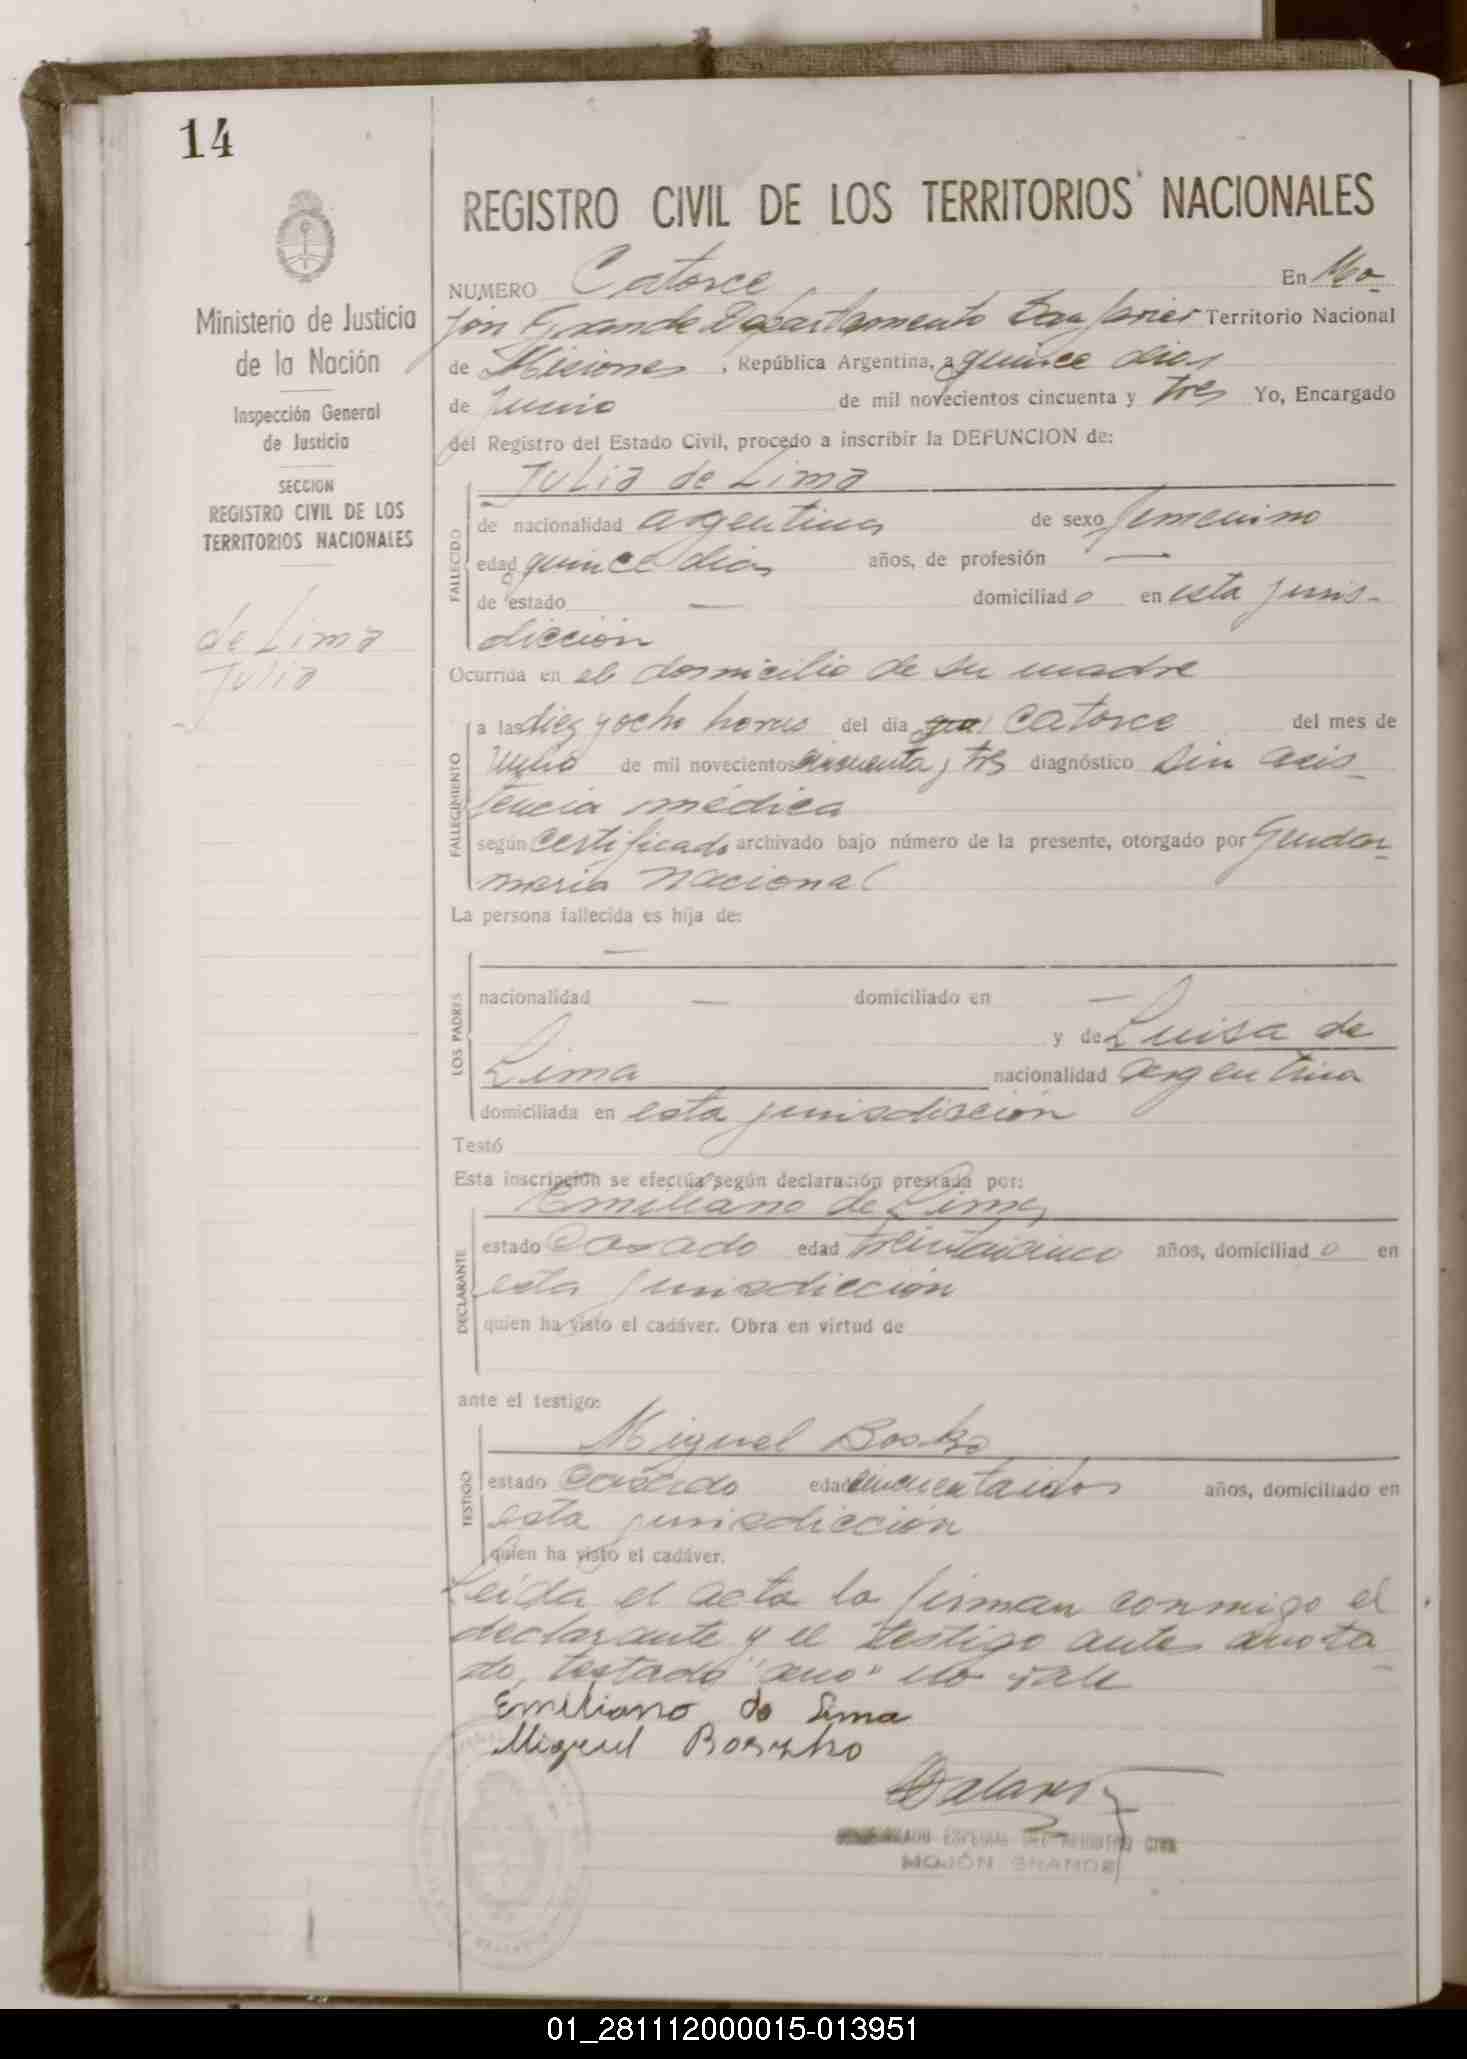 14
REGISTRO CIVIL DE LOS TERRITORIOS NACIONALES
Ministerio de Justicia
de la Nación
Inspección General
de Justicia
SECCION
REGISTRO CIVIL DE LOS
TERRITORIOS NACIONALES
de Lima
Julia
NUMERO Catorce En Mo-
jón Grande Departamento San Javier Territorio Nacional
de Misiones, República Argentina, a quince dias
de Junio de mil novecientos cincuenta y tres Yo, Encargado
del Registro del Estado Civil, procedo a inscribir la DEFUNCION de:
FALLECIDO
Julia de Lima
de nacionalidad argentina de sexo femenino
edad quince dias años, de profesión —
de estado — domiciliado en esta juris-
dicción
Ocurrida en el domicilio de su madre
FALLECIMIENTO
a las diez y ocho horas del dia catorce del mes de
de mil novecientos cincuenta y tres diagnóstico sin asis-
tencia médica
según certificado archivado bajo número de la presente, otorgado por Gendar-
meria Nacional
La persona fallecida es hija de:
LOS PADRES
—
nacionalidad — domiciliado en —
y de Luisa de
Lima nacionalidad argentina
domiciliada en esta jurisdicción
Testó
Esta inscripción se efectúa según declaración prestada por:
DECLARANTE
Emiliano de Lima
estado Casado edad treintaicinco años, domiciliado en
esta jurisdicción
quien ha visto el cadáver. Obra en virtud de
ante el testigo:
TESTIGO
Miguel Bosko
estado Casado edad cincuentaidos años, domiciliado en
esta jurisdicción
quien ha visto el cadáver.
Leida el acta la firman conmigo el
declarante y el testigo antes anota-
do, testado no vale
Emiliano de Lima
Miguel
ESPECIAL DEL REGISTRO CIVIL
MOJÓN GRANDE
01_281112000015-013951